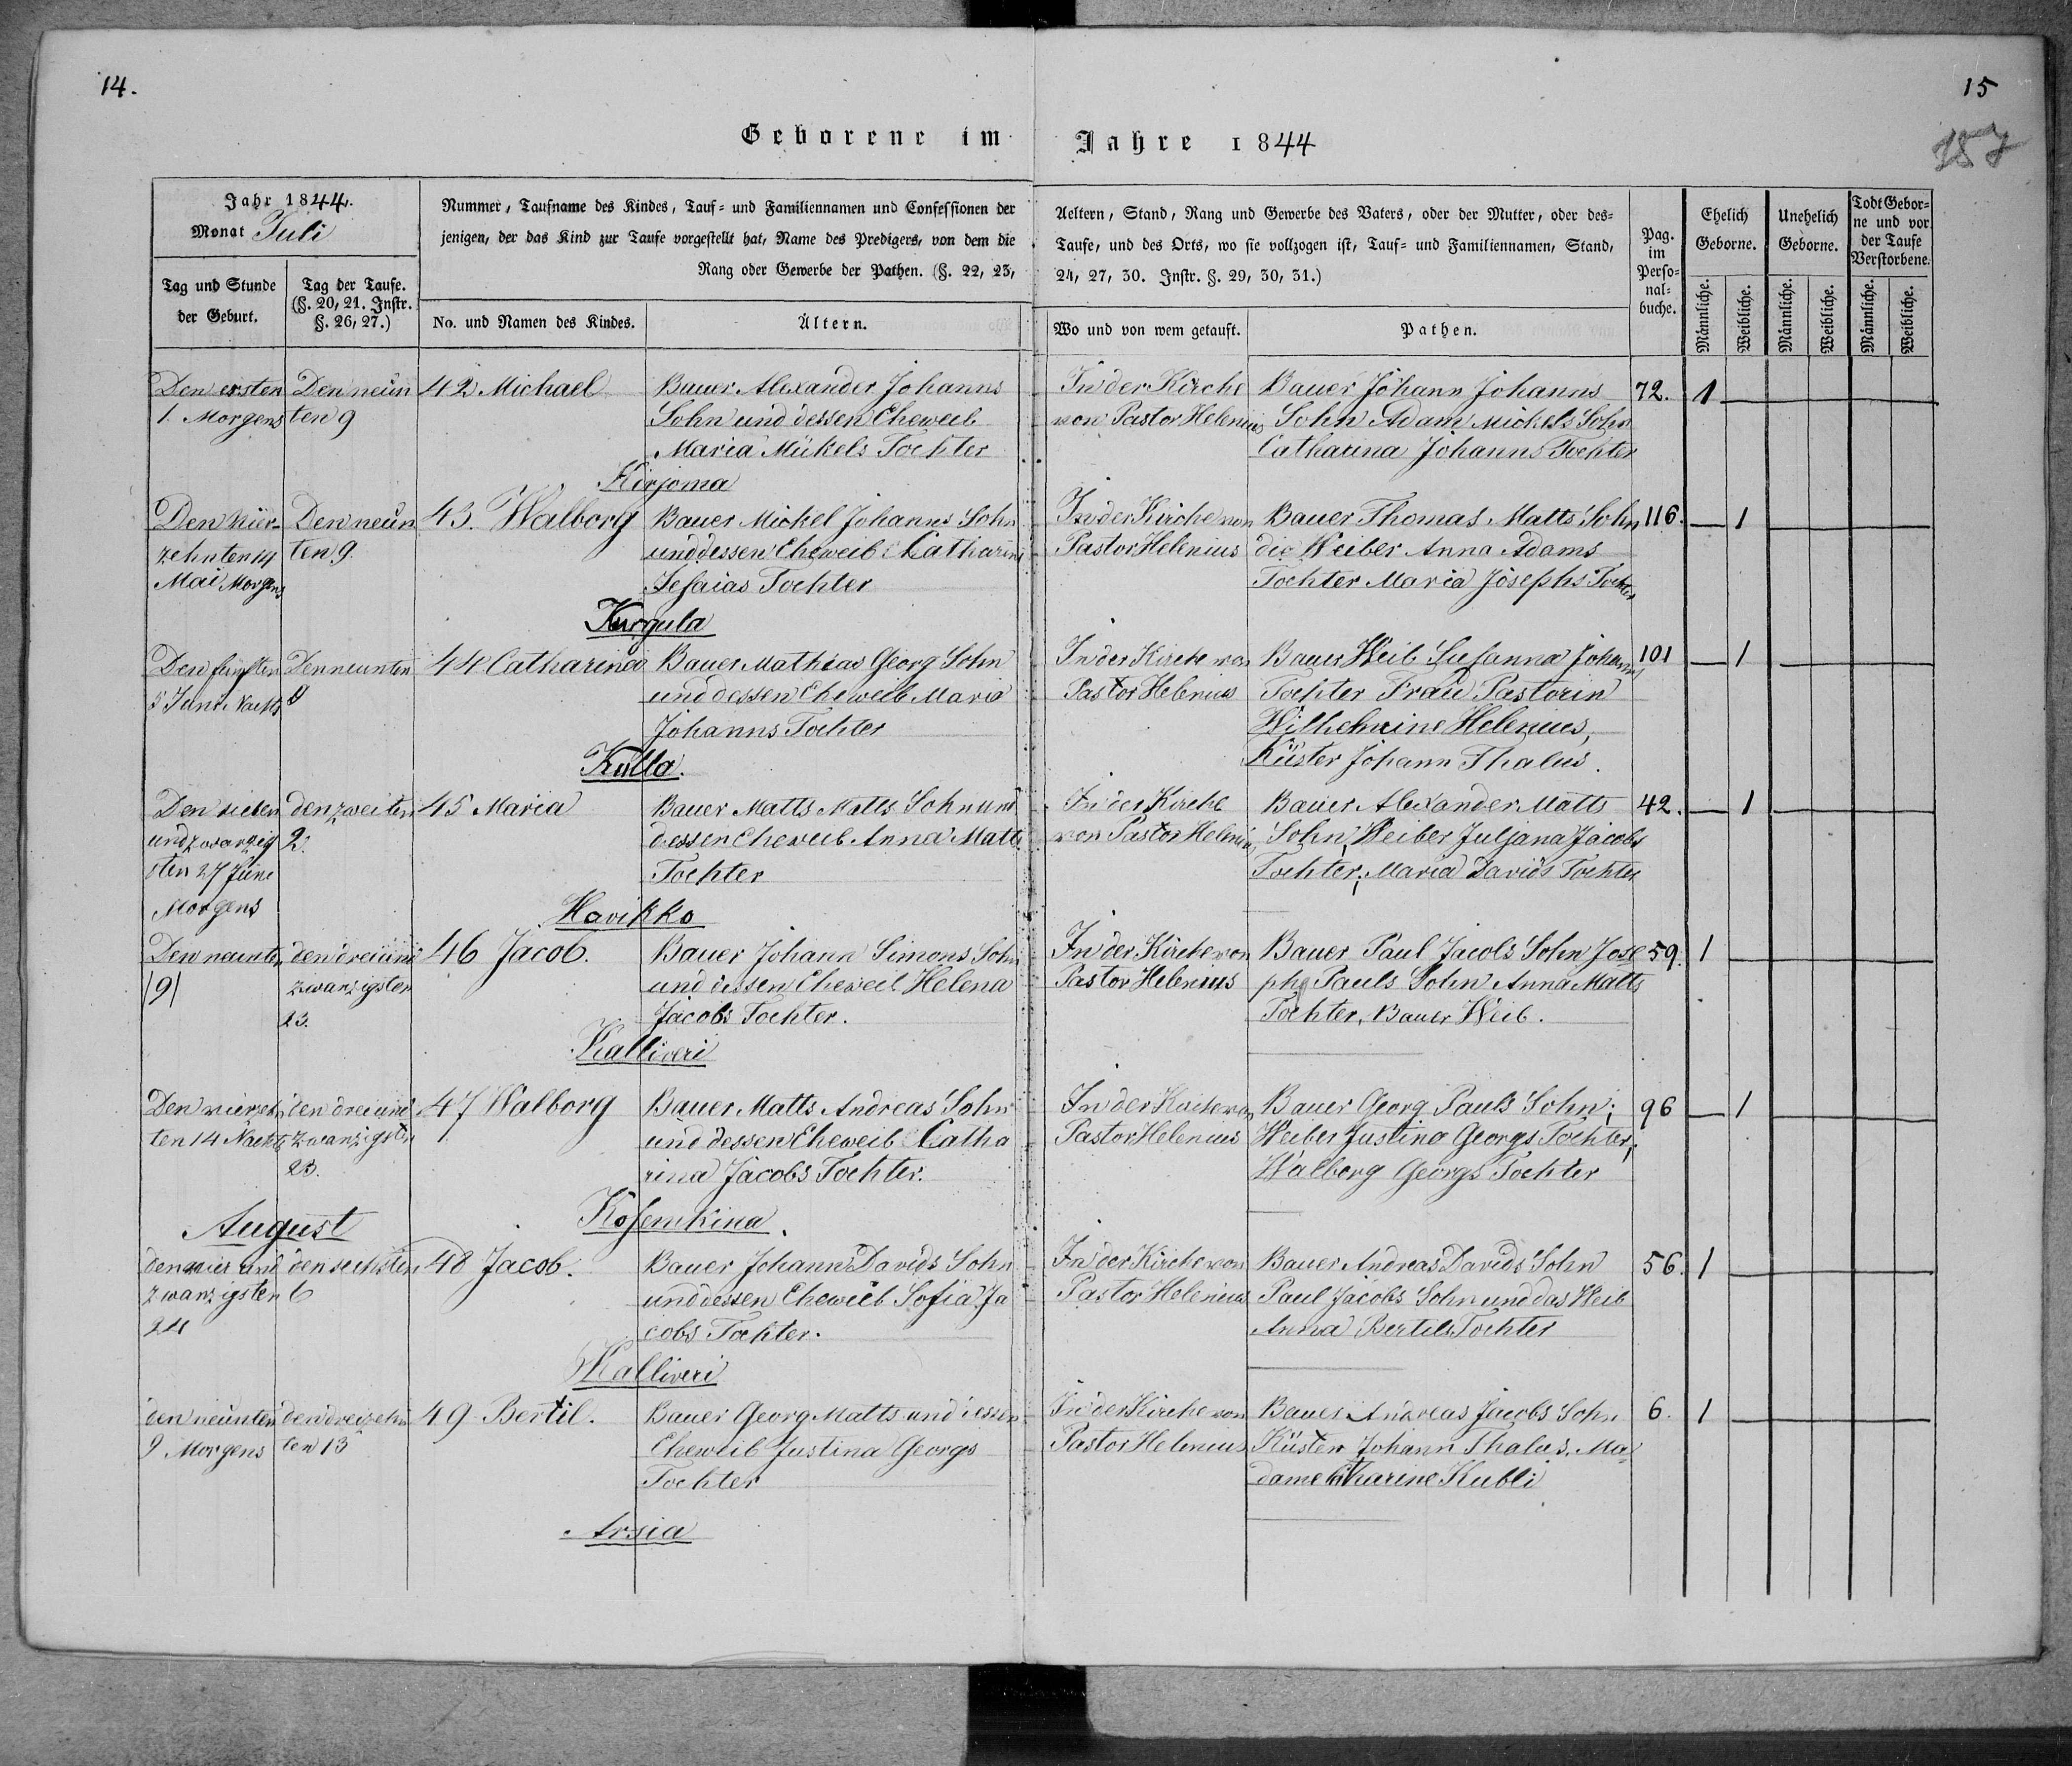 14.
15
157
Geborene im Jahre 1844
Jahr 1844.
Monat Juli
Tag und Stunde der Geburt.
Tag der Taufe. (§. 20, 21. Instr. §. 26, 27.)
Nummer, Taufname des Kindes, Tauf- und Familiennamen und Confessionen der Aeltern, Stand, Rang und Gewerbe des Vaters, oder der Mutter, oder des-
jenigen, der das Kind zur Taufe vorgestellt hat, Name des Predigers, von dem die Taufe, und des Orts, wo sie vollzogen ist, Tauf- und Familiennamen, Stand,
Rang oder Gewerbe der Pathen. (§. 22, 23, 24, 27, 30. Instr. §. 29, 30, 31.)
No. und Namen des Kindes.
Ältern.
Wo und von wem getauft.
Pathen.
Pag. im Perso-nal-buche.
Ehelich Geborne.
Unehelich Geborne.
Todt Gebor-ne und vor der Taufe Verstorbene.
Männliche. Weibliche. Männliche. Weibliche. Männliche. Weibliche.
Den ersten Den neun 42 Michael Bauer Alexander Johanns In der Kirche Bauer Johann Johanns 72. 1
1. Morgens ten 9 Sohn und dessen Eheweib von Pastor Helenius Sohn Adam Mickels Sohn
Maria Mickels Tochter Catharina Johanns Tochter
Kirjoma
Den vier- Den neun 43. Walborg Bauer Mickel Johanns Sohn In der Kirche von Bauer Thomas Matts Sohn 116. 1
zehnten 14 ten 9. und dessen Eheweib Catharina Pastor Helenius die Weiber Anna Adams
Mai Morgens Jesaias Tochter Tochter Maria Josephs Tochter
Kurgula
Den fünften Den neunten 44 Catharina Bauer Mathias Georg Sohn In der Kirche von Bauer Weib Susanna Johanns 101 1
5 Juni Nachts 9 und dessen Eheweib Maria Pastor Helenius Tochter Frau Pastorin
Johanns Tochter Wilhelmine Helenius,
Küster Johann Thalus.
Kulla.
Den sieben den zweiten 45 Maria Bauer Matts Matts Sohn und In der Kirche Bauer Alexander Matts 42. 1
und zwanzig 2. dessen Eheweib Anna Matts von Pastor Helenius Sohn, Weiber Juljana Jacobs
sten 27 Juni Tochter Tochter; Maria Davids Tochter
Morgens
Havikko
Den neunten den drei und 46 Jacob. Bauer Johann Simons Sohn In der Kirche von Bauer Paul Jacobs Sohn Jose 59. 1
/9/ zwanzigsten und dessen Eheweib Helena Pastor Helenius ph Pauls Sohn Anna Matts
23. Jacobs Tochter. Tochter, Bauer Weib.
Kalliveri
Den vierzehn den drei und 47 Walborg Bauer Matts Andreas Sohn In der Kirche von Bauer Georg Pauls Sohn; 96 1
ten 14 Nachts zwanzigsten und dessen Eheweib Catha Pastor Helenius Weiber Justina Georgs Tochter;
23. rina Jacobs Tochter. Walborg Georgs Tochter
Kosemkina.
August
den vier und den sechsten 48 Jacob. Bauer Johann Davids Sohn In der Kirche von Bauer Andreas Davids Sohn 56. 1
zwanzigsten 6 und dessen Eheweib Sofia Ja Pastor Helenius Paul Jacobs Sohn und das Weib
24 cobs Tochter. Anna Bertils Tochter
Kalliveri
den neunten den dreizehn 49 Bertil. Bauer Georg Matts und dessen In der Kirche von Bauer Andreas Jacobs Sohn 6. 1
9 Morgens ten 13 Eheweib Justina Georgs Pastor Helenius Küster Johann Thalus. Ma-
Tochter dame Catharine Kubli
Arsia